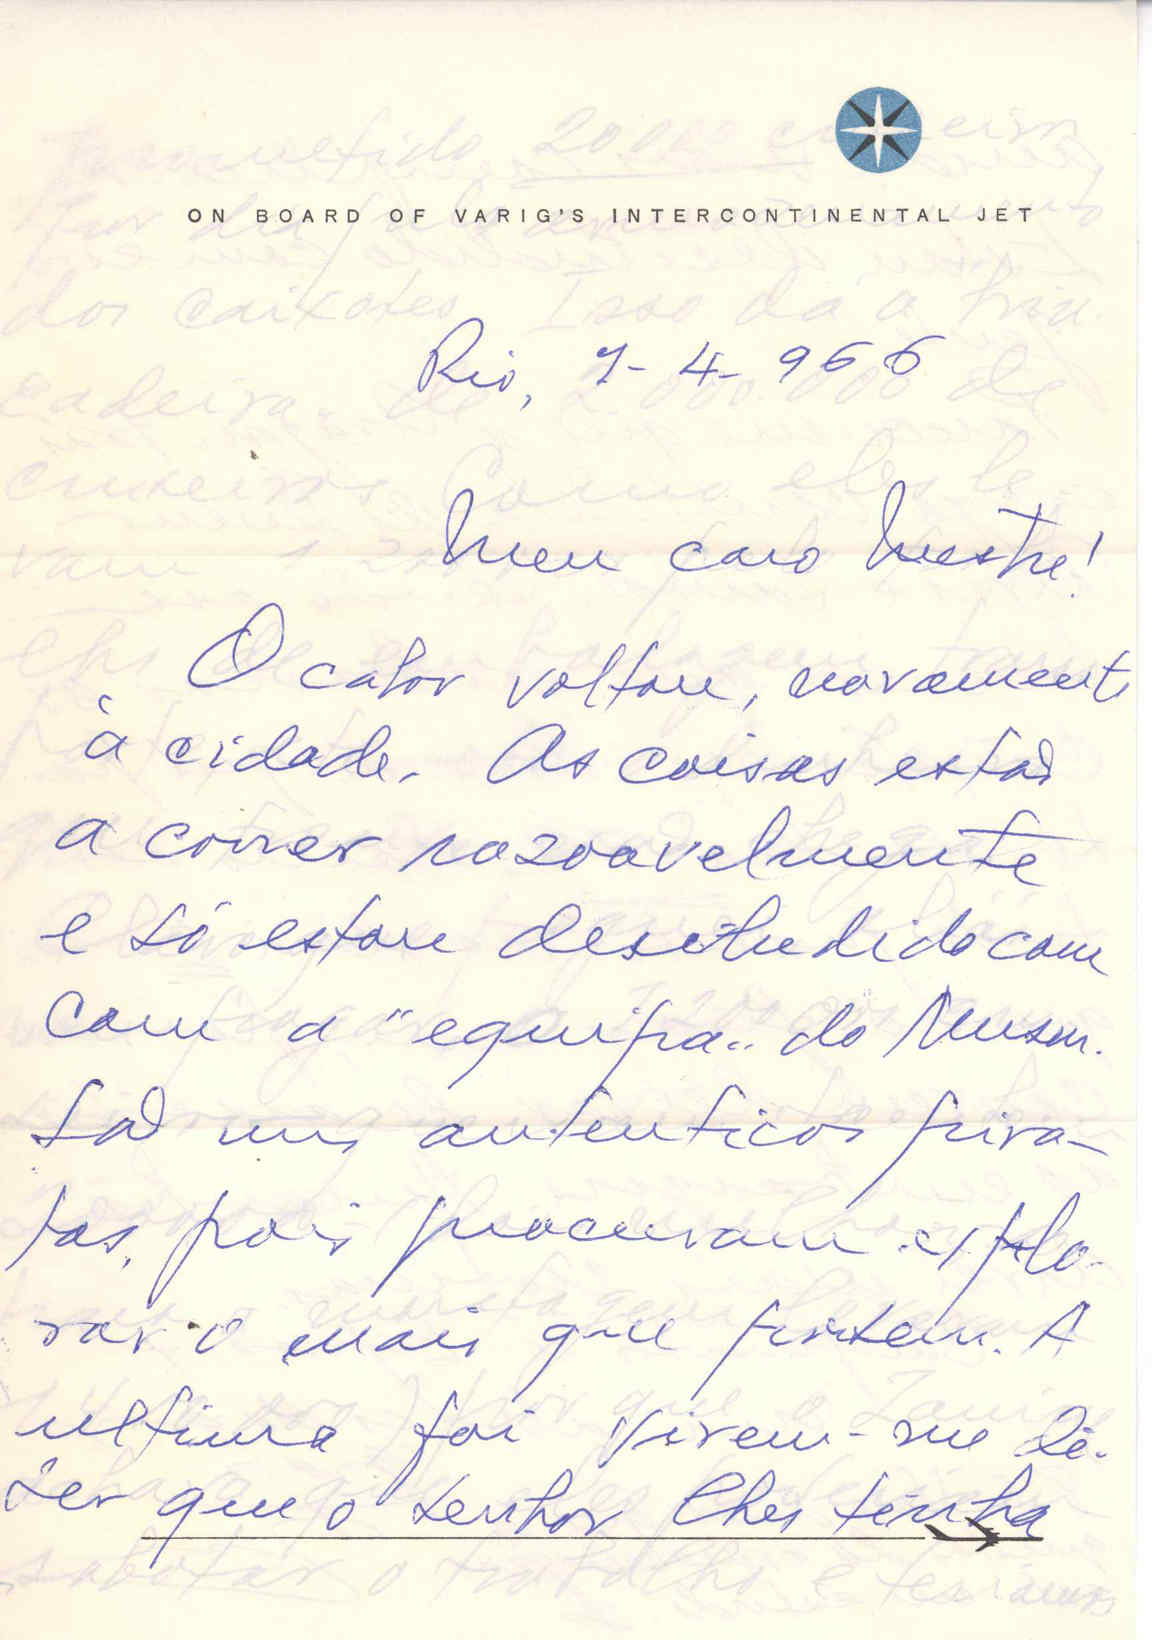 ON BOARD OF VARIG'S INTERCONTINENTAL JET
Rio, 7-4-966
Meu caro Mestre!
O calor voltou, novamente
à cidade. As coisas estão
a correr razoavelmente
e só estou desiludido com
com a "equipa" do Museu.
São uns autenticos pira-
tas, pois procuram explo-
rar o mais que podem. A
ultima foi virem-me di-
zer que o senhor lhes tinha